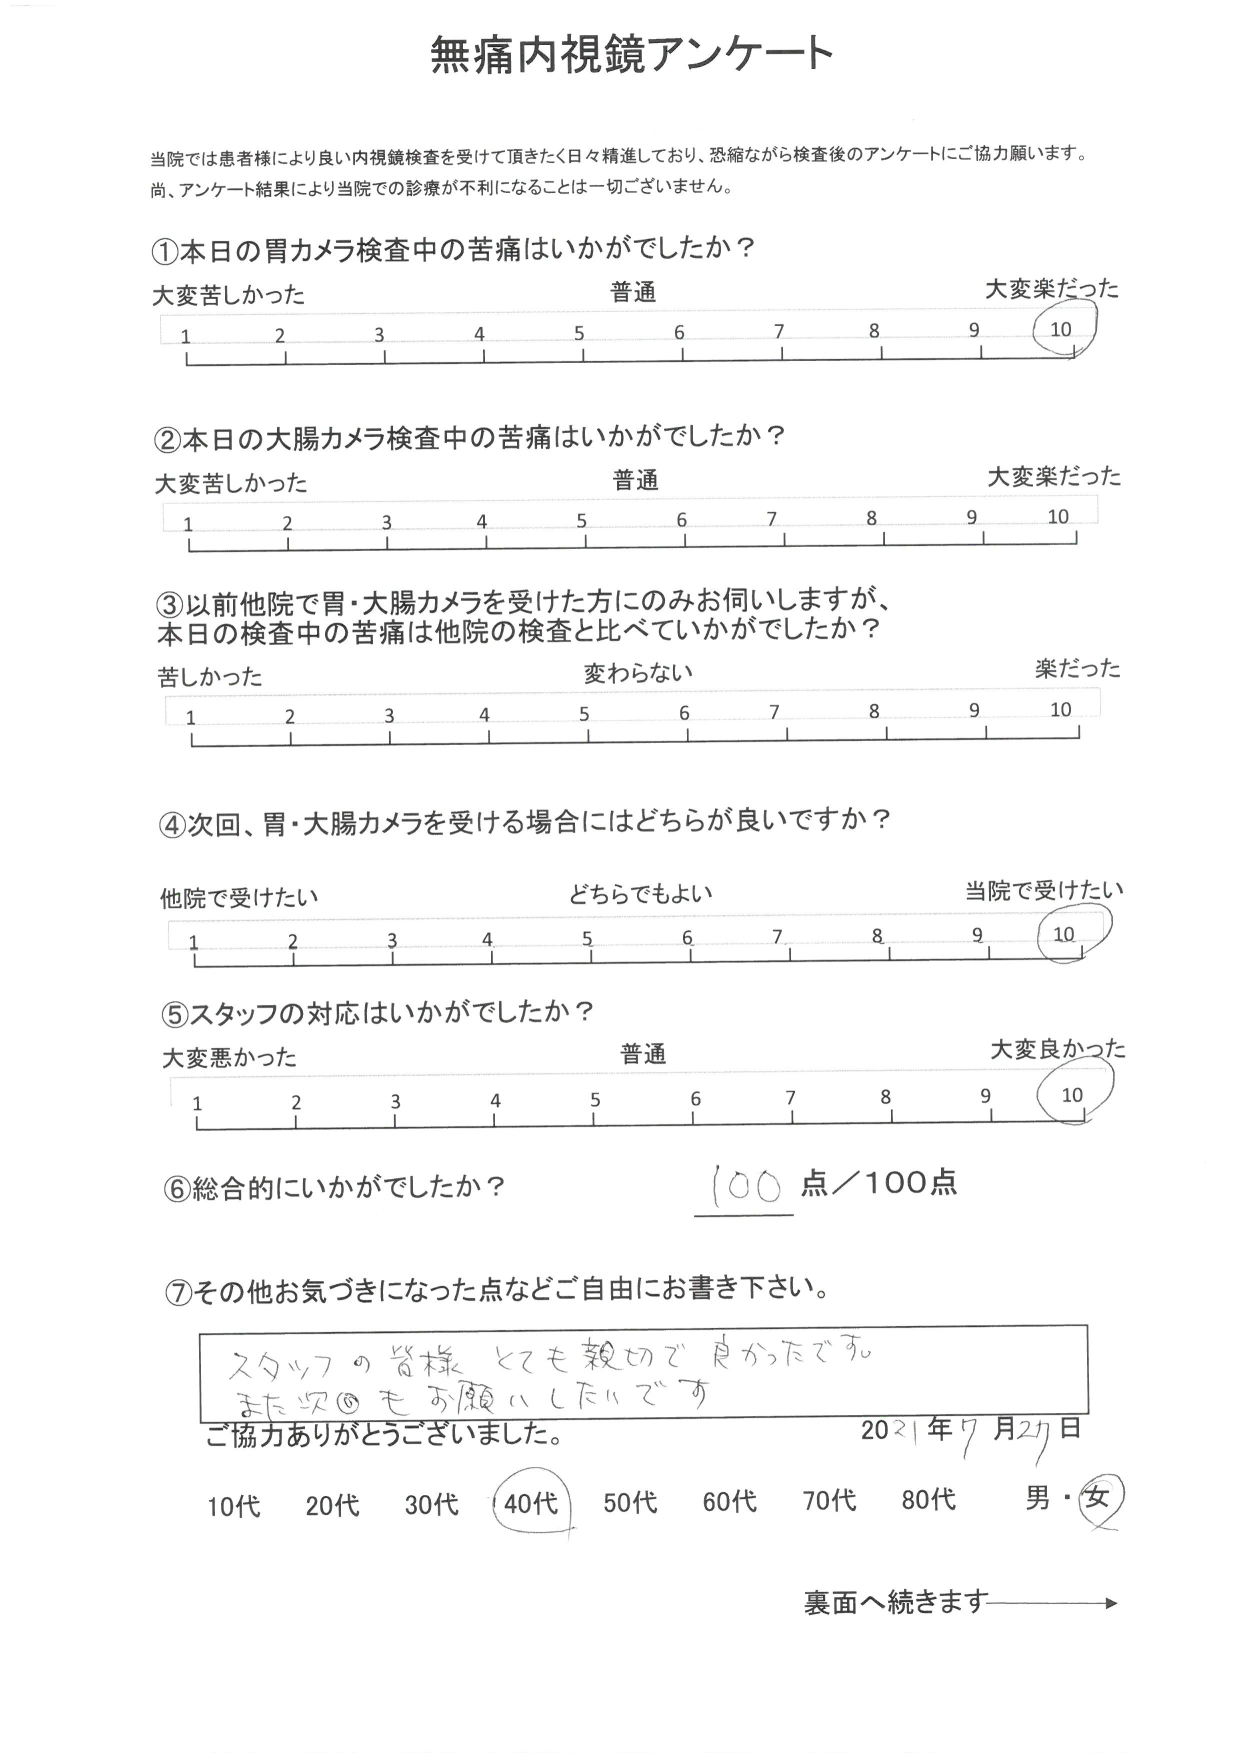 無痛内視鏡アンケート
当院では患者様により良い内視鏡検査を受けて頂きたく日々精進しており、恐縮ながら検査後のアンケートにご協力願います。
尚、アンケート結果により当院での診療が不利になることは一切ございません。
①本日の胃カメラ検査中の苦痛はいかがでしたか？
大変苦しかった 普通 大変楽だった
1 2 3 4 5 6 7 8 9 10
②本日の大腸カメラ検査中の苦痛はいかがでしたか？
大変苦しかった 普通 大変楽だった
1 2 3 4 5 6 7 8 9 10
③以前他院で胃・大腸カメラを受けた方にのみお伺いしますが、
本日の検査中の苦痛は他院の検査と比べていかがでしたか？
苦しかった 変わらない 楽だった
1 2 3 4 5 6 7 8 9 10
④次回、胃・大腸カメラを受ける場合にはどちらが良いですか？
他院で受けたい どちらでもよい 当院で受けたい
1 2 3 4 5 6 7 8 9 10
⑤スタッフの対応はいかがでしたか？
大変悪かった 普通 大変良かった
1 2 3 4 5 6 7 8 9 10
⑥総合的にいかがでしたか？ 100 点／100点
⑦その他お気づきになった点などご自由にお書き下さい。
スタッフの皆様 とても親切で 良かったです。
また次回もお願いしたいです
ご協力ありがとうございました。 2021年7月27日
10代 20代 30代 40代 50代 60代 70代 80代 男・女
裏面へ続きます